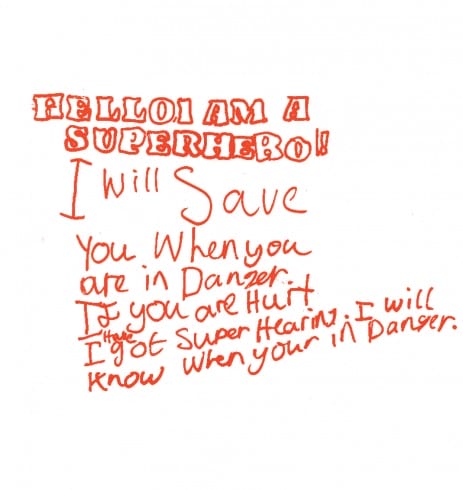 HELLO I AM A
SUPERHERO!!
I Will Save
You When you
are in Danger.
If you are Hurt
I Have got Super Hearing. I will
Know When your in Danger.